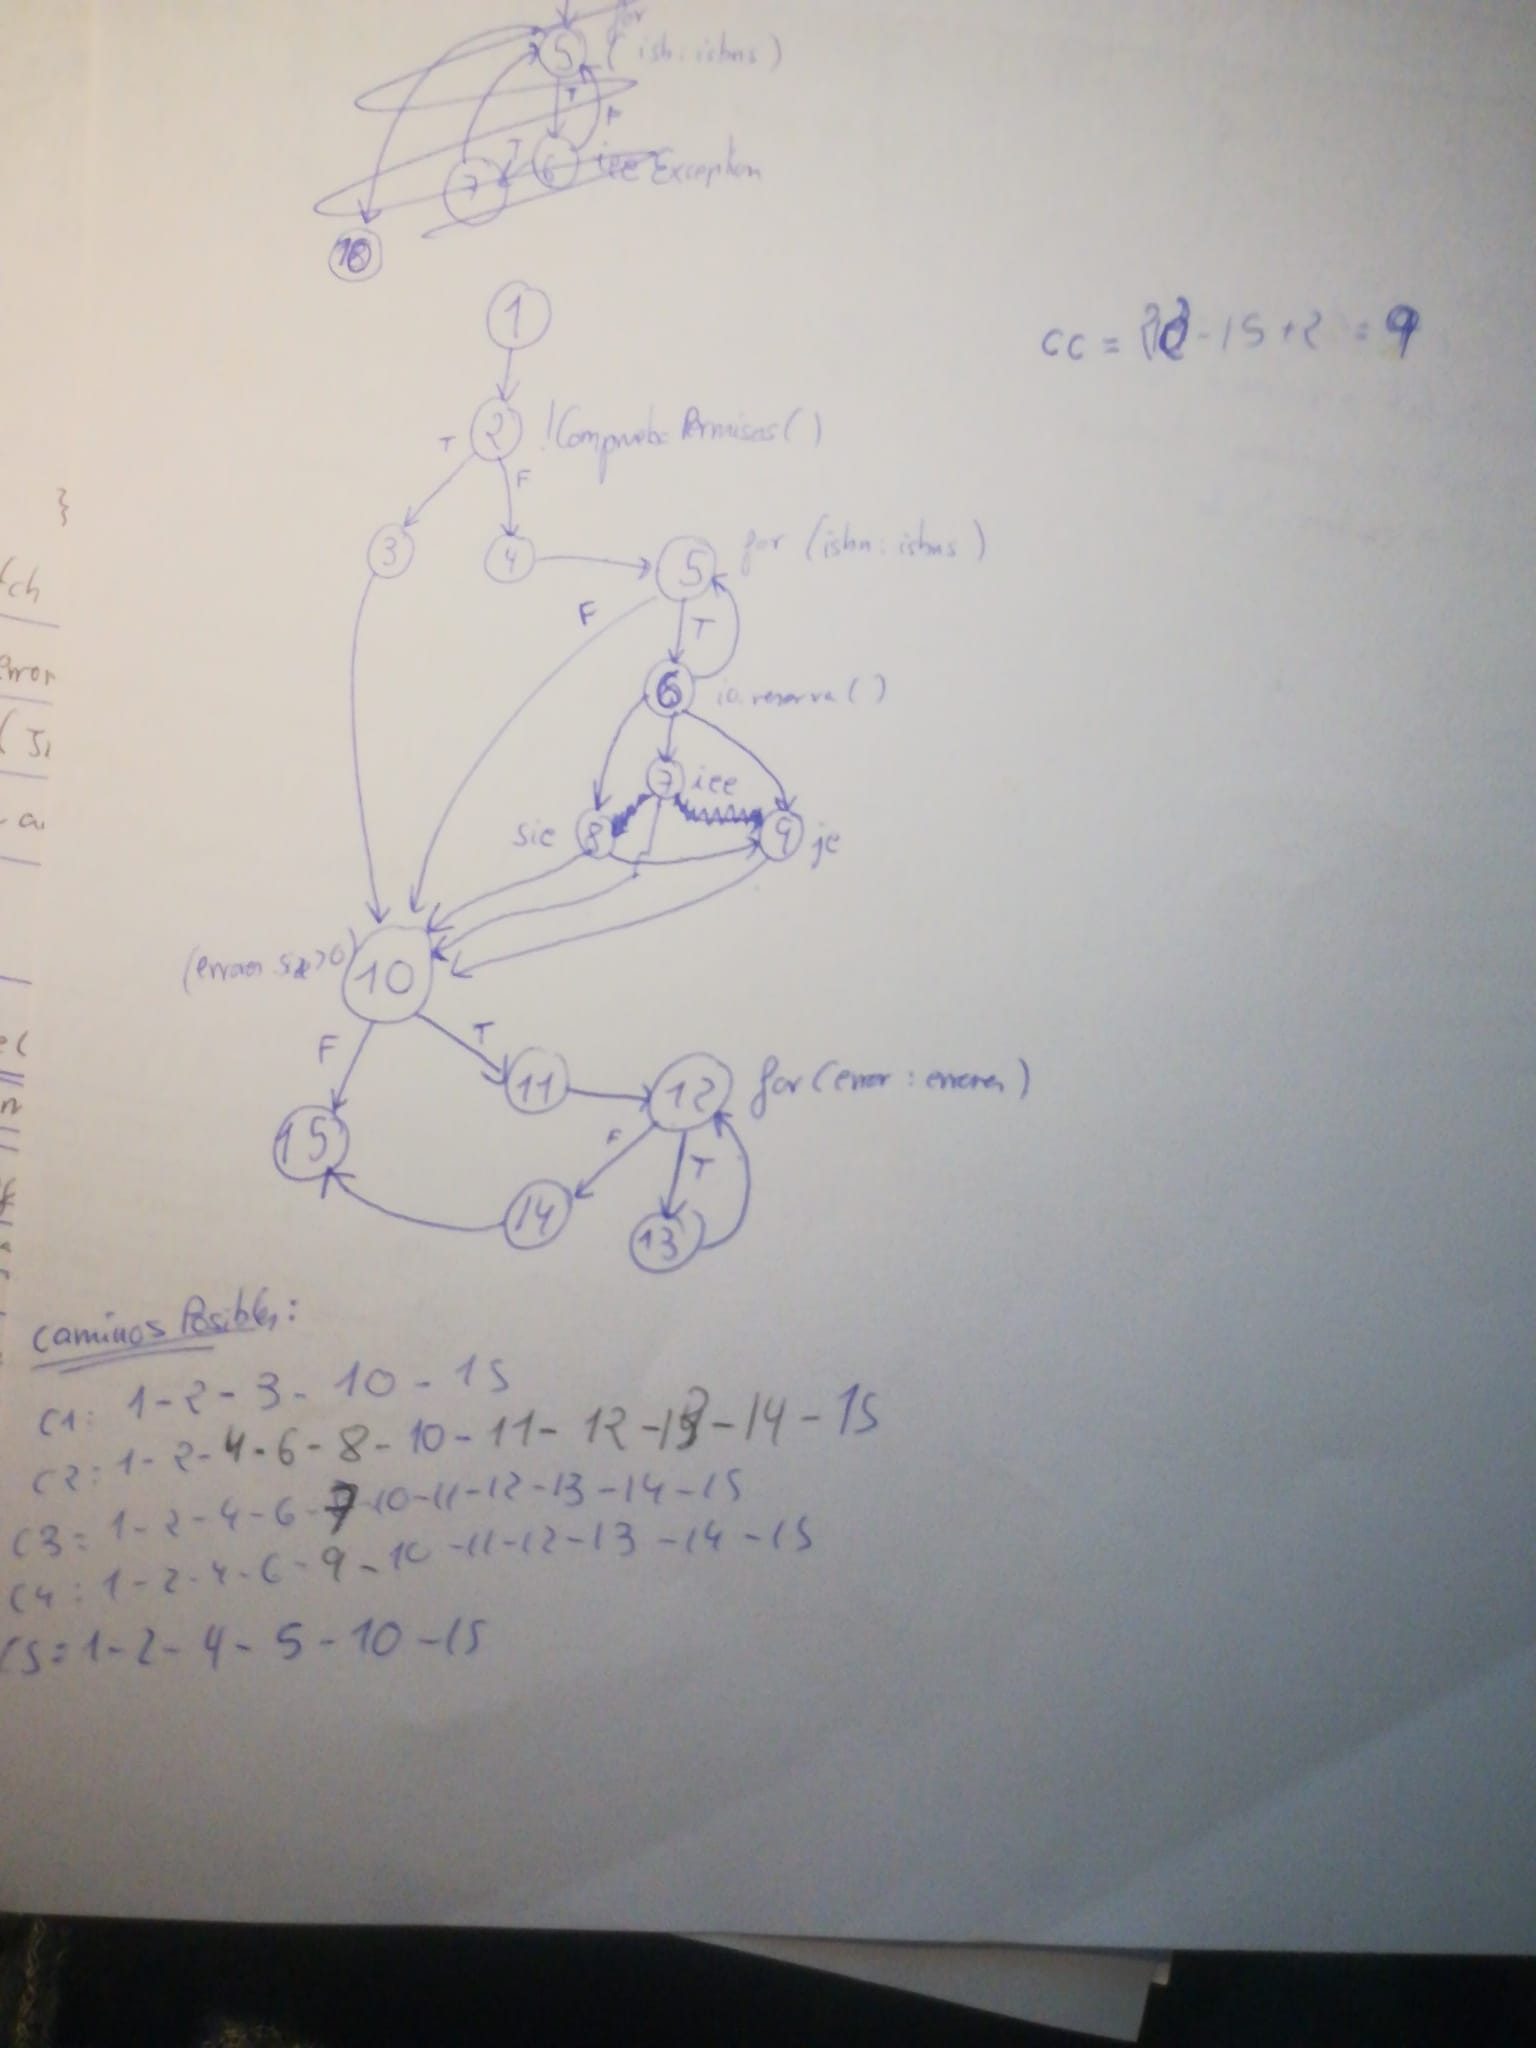 for
(isb: isbns)
5
T
F
T
6
iee Exception
7
10
1
CC = - 15 + 2 = 9
2 !Comprueba Permisos()
T
F
3
4
5
for (isbn: isbns)
F
T
6
io.reserva()
7
iee
sie
8
9
je
10
F
T
11
12
for(error: errores)
15
F
T
14
13
Caminos Posibles:
C1: 1 - 2 - 3 - 10 - 15
C2: 1 - 2 - 4 - 6 - 8 - 10 - 11 - 12 - 13 - 14 - 15
C3: 1 - 2 - 4 - 6 - 7 - 10 - 11 - 12 - 13 - 14 - 15
C4: 1 - 2 - 4 - 6 - 9 - 10 - 11 - 12 - 13 - 14 - 15
C5: 1 - 2 - 4 - 5 - 10 - 15
}
error